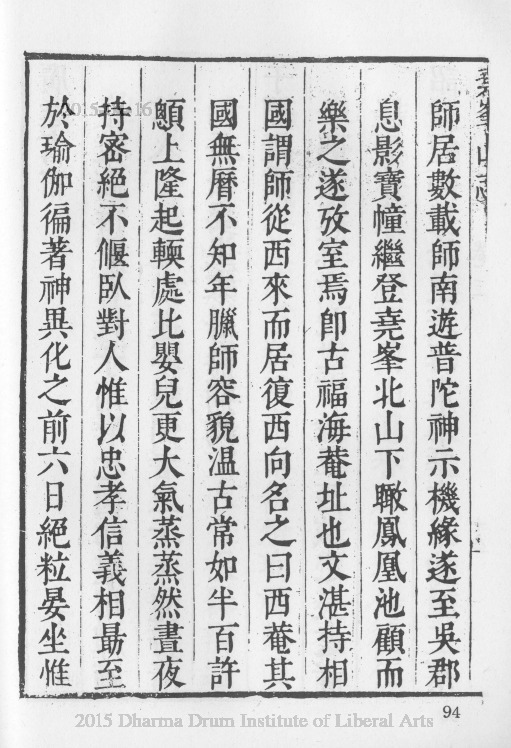 師居數載師南遊普陀神示機緣遂至吳郡
息影寶幢繼登堯峯北山下瞰鳳凰池顧而
樂之遂攷室焉卽古福海菴址也文湛持相
國謂師從西來而居復西向名之曰西菴其
國無曆不知年臘師容貌温古常如半百許
顖上隆起輭處比嬰兒更大氣蒸蒸然晝夜
持密絕不偃臥對人惟以忠孝信義相勗至
於瑜伽徧著神異化之前六日絕粒晏坐惟
94
2015 Dharma Drum Institute of Liberal Arts